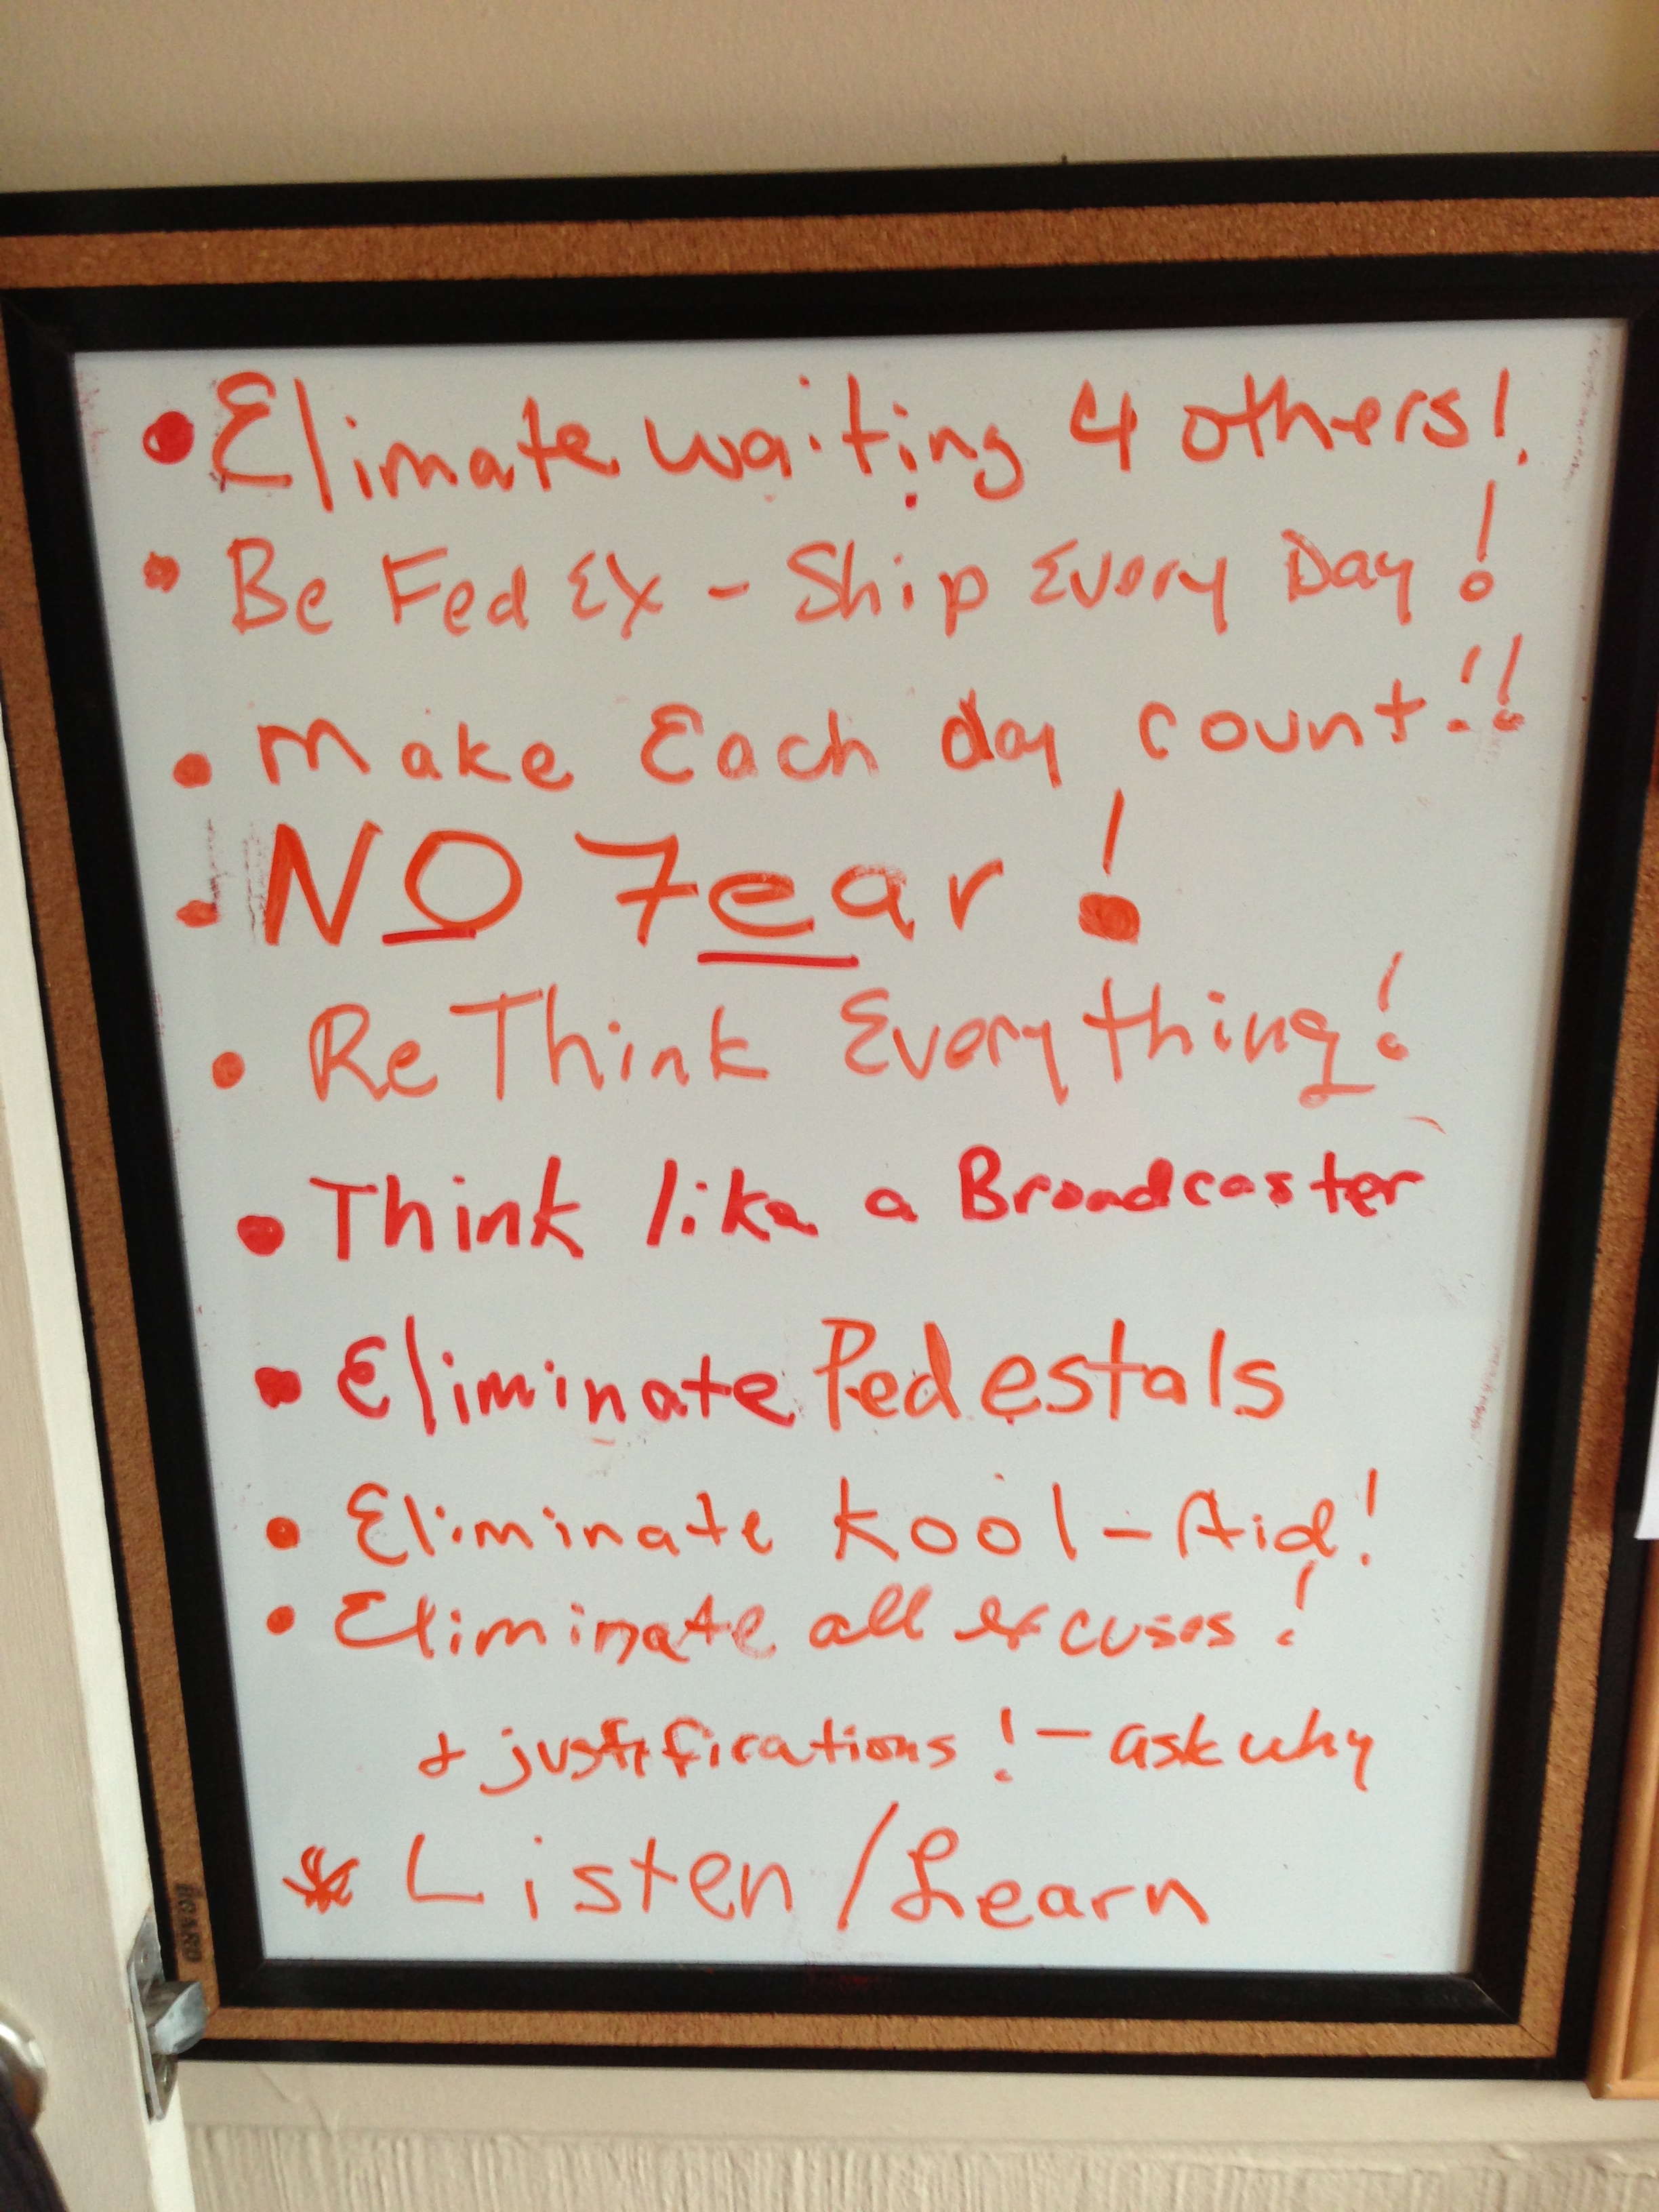 • Elimate waiting 4 others!
• Be Fed Ex - Ship Every Day!
• Make Each day count!!
• NO Fear!
• ReThink Everything!
• Think like a Broadcaster
• Eliminate Pedestals
• Eliminate Kool-Aid!
• Eliminate all excuses!
+ justifications! - ask why
* Listen / Learn
BOARD